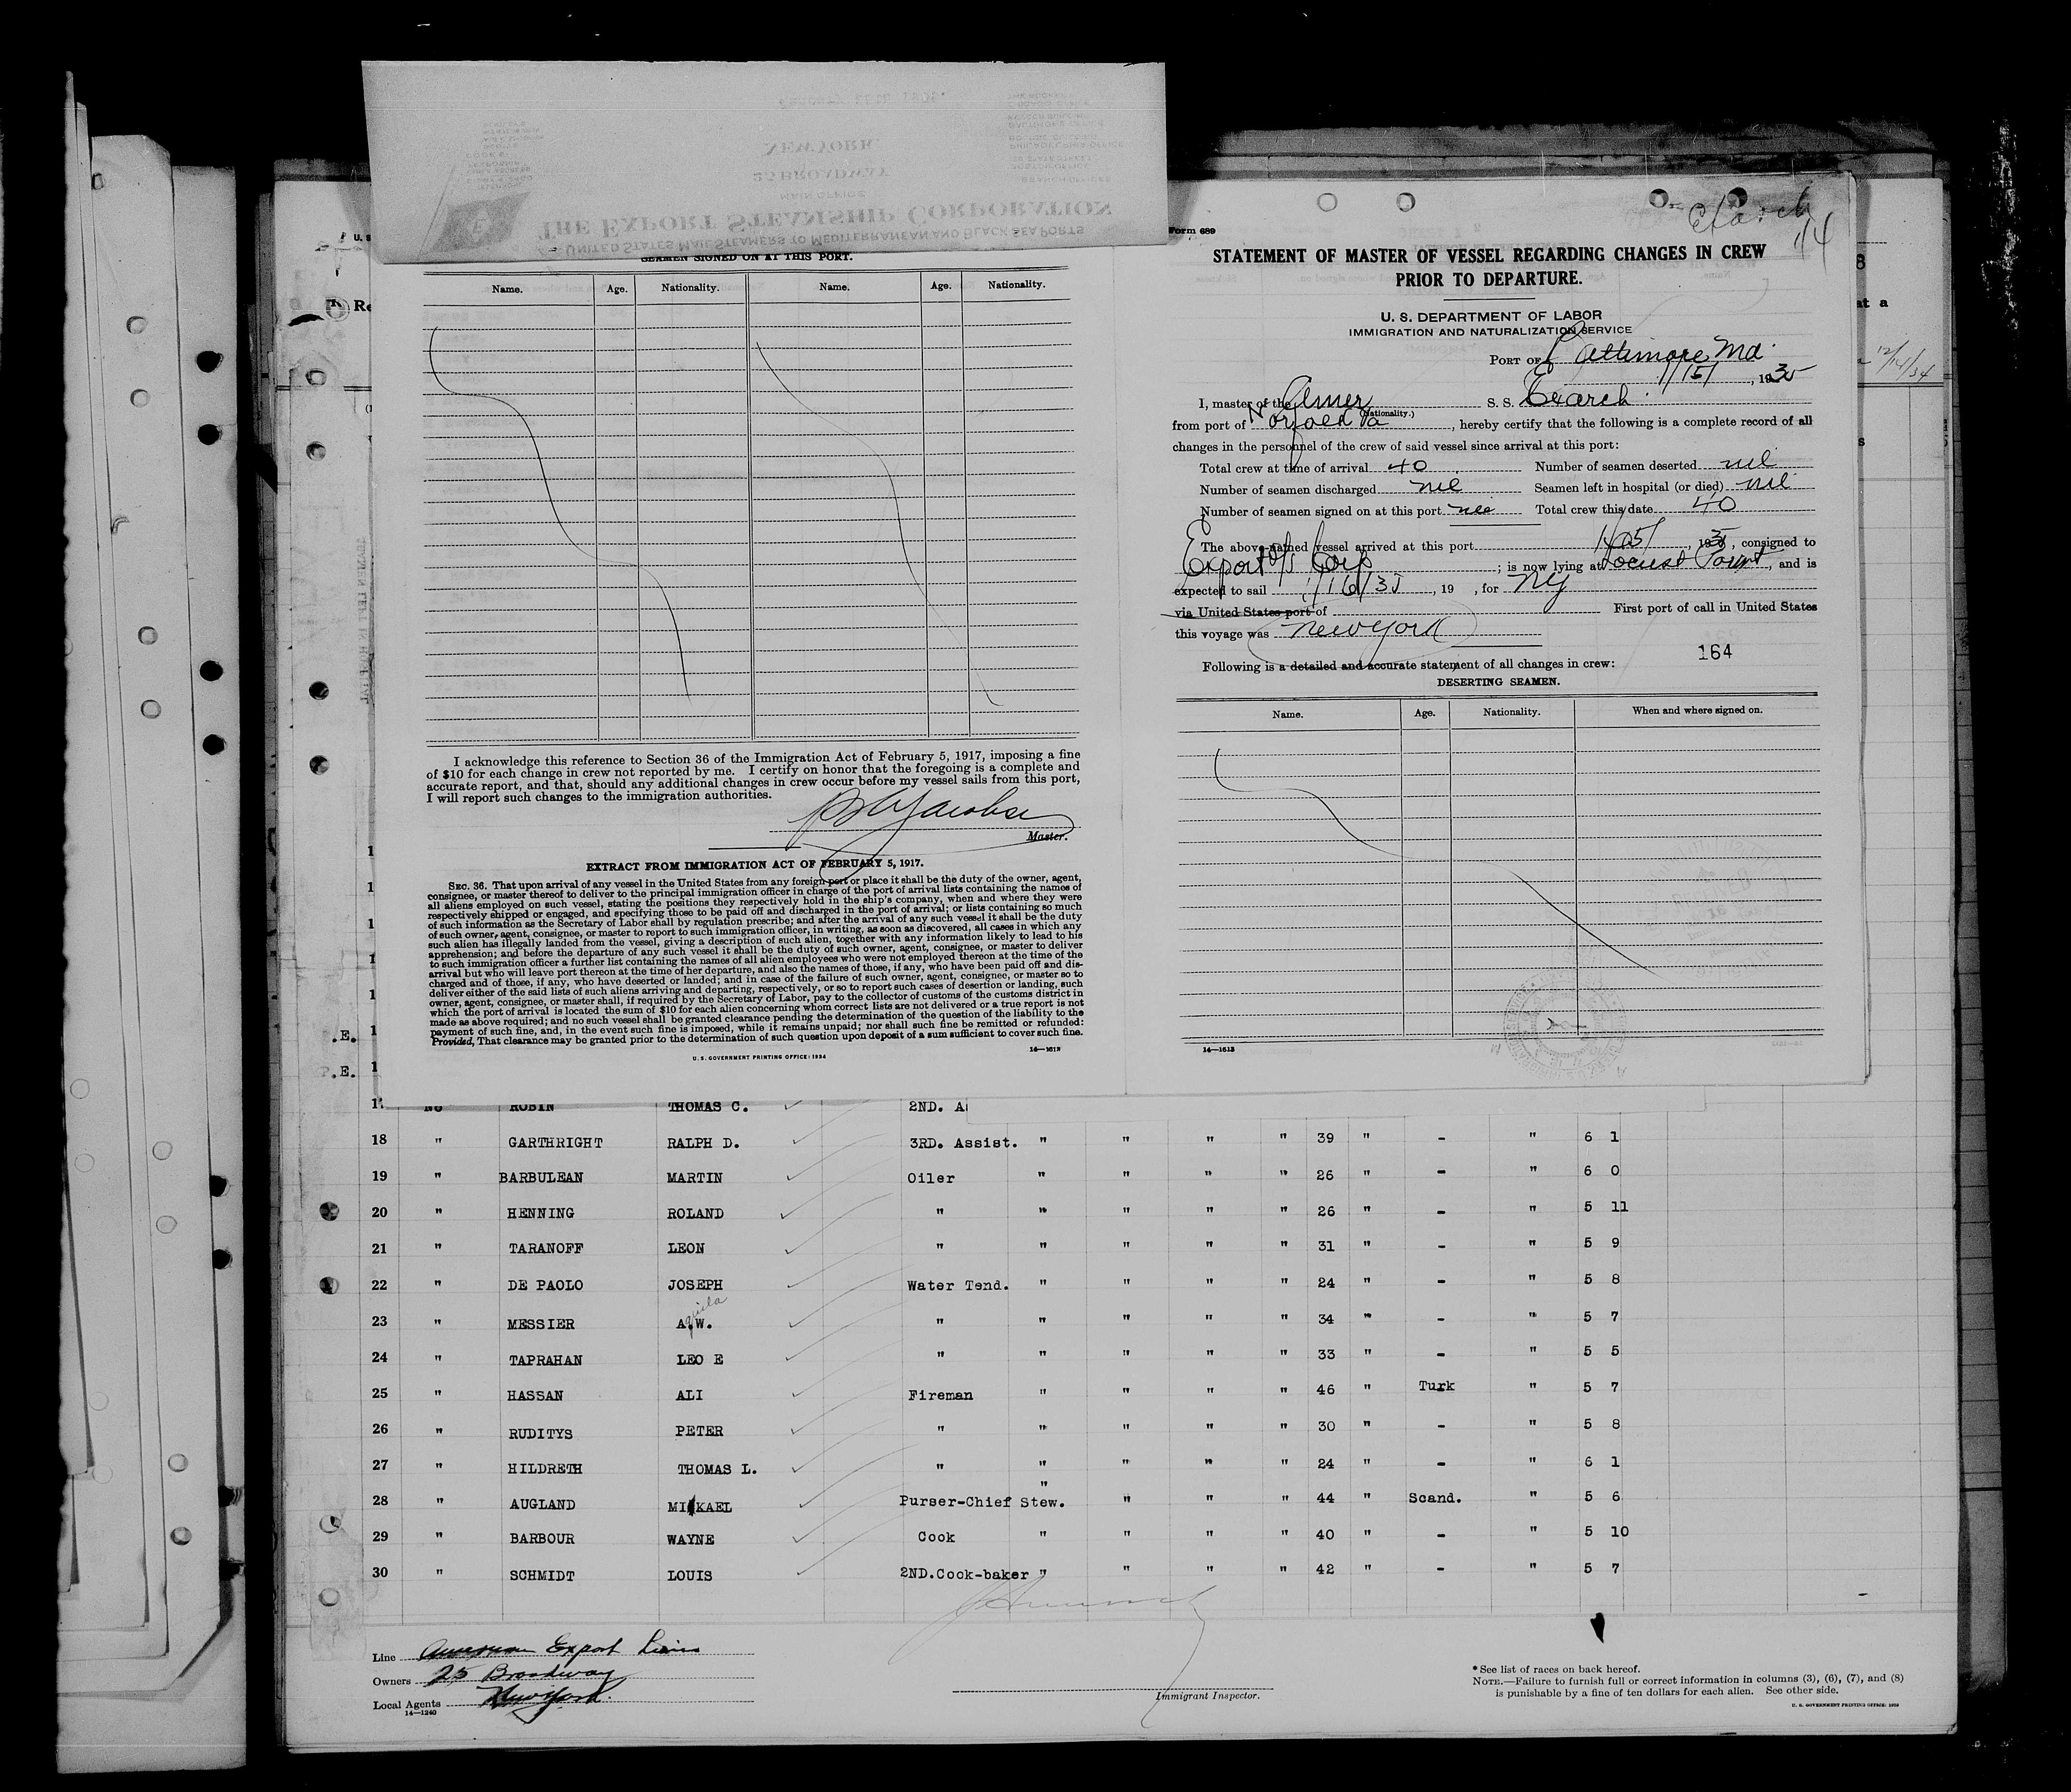 THE EXPORT STEAMSHIP CORPORATION
UNITED STATES MAIL STEAMERS TO MEDITERRANEAN AND BLACK SEA PORTS
MAIN OFFICE
25 BROADWAY
NEW YORK
SEAMEN SIGNED ON AT THIS PORT.
Name. Age. Nationality. Name. Age. Nationality.
I acknowledge this reference to Section 36 of the Immigration Act of February 5, 1917, imposing a fine
of $10 for each change in crew not reported by me. I certify on honor that the foregoing is a complete and
accurate report, and that, should any additional changes in crew occur before my vessel sails from this port,
I will report such changes to the immigration authorities.
Master.
EXTRACT FROM IMMIGRATION ACT OF FEBRUARY 5, 1917.
SEC. 36. That upon arrival of any vessel in the United States from any foreign port or place it shall be the duty of the owner, agent,
consignee, or master thereof to deliver to the principal immigration officer in charge of the port of arrival lists containing the names of
all aliens employed on such vessel, stating the positions they respectively hold in the ship's company, when and where they were
respectively shipped or engaged, and specifying those to be paid off and discharged in the port of arrival; or lists containing so much
of such information as the Secretary of Labor shall by regulation prescribe; and after the arrival of any such vessel it shall be the duty
of such owner, agent, consignee, or master to report to such immigration officer, in writing, as soon as discovered, all cases in which any
such alien has illegally landed from the vessel, giving a description of such alien, together with any information likely to lead to his
apprehension; and before the departure of any such vessel it shall be the duty of such owner, agent, consignee, or master to deliver
to such immigration officer a further list containing the names of all alien employees who were not employed thereon at the time of the
arrival but who will leave port thereon at the time of her departure, and also the names of those, if any, who have been paid off and dis-
charged and of those, if any, who have deserted or landed; and in case of the failure of such owner, agent, consignee, or master so to
deliver either of the said lists of such aliens arriving and departing, respectively, or so to report such cases of desertion or landing, such
owner, agent, consignee, or master shall, if required by the Secretary of Labor, pay to the collector of customs of the customs district in
which the port of arrival is located the sum of $10 for each alien concerning whom correct lists are not delivered or a true report is not
made as above required; and no such vessel shall be granted clearance pending the determination of the question of the liability to the
payment of such fine, and, in the event such fine is imposed, while it remains unpaid; nor shall such fine be remitted or refunded:
Provided, That clearance may be granted prior to the determination of such question upon deposit of a sum sufficient to cover such fine.
U. S. GOVERNMENT PRINTING OFFICE: 1934 14—1613
Form 689
STATEMENT OF MASTER OF VESSEL REGARDING CHANGES IN CREW
PRIOR TO DEPARTURE.
U. S. DEPARTMENT OF LABOR
IMMIGRATION AND NATURALIZATION SERVICE
PORT OF Baltimore Md.
1/15/, 1935
I, master of the Amer (Nationality.) S. S. Exarch
from port of Norfolk Va, hereby certify that the following is a complete record of all
changes in the personnel of the crew of said vessel since arrival at this port:
Total crew at time of arrival 40 Number of seamen deserted nil
Number of seamen discharged nil Seamen left in hospital (or died) nil
Number of seamen signed on at this port nil Total crew this date 40
The above-named vessel arrived at this port 1/15/, 1935, consigned to
Export S/S Corp; is now lying at Locust Point, and is
expected to sail 1/16/35, 19 , for NY
via United States port of First port of call in United States
this voyage was New York
164
Following is a detailed and accurate statement of all changes in crew:
DESERTING SEAMEN.
Name. Age. Nationality. When and where signed on.
14—1613
No ROBIN THOMAS C. 2ND. A
18 " GARTHRIGHT RALPH D. 3RD. Assist. " " " " 39 " - " 6 1
19 " BARBULEAN MARTIN Oiler " " " " 26 " - " 6 0
20 " HENNING ROLAND " " " " " 26 " - " 5 11
21 " TARANOFF LEON " " " " " 31 " - " 5 9
22 " DE PAOLO JOSEPH Water Tend. " " " " 24 " - " 5 8
23 " MESSIER A.W. " " " " " 34 " - " 5 7
24 " TAPRAHAN LEO E " " " " " 33 " - " 5 5
25 " HASSAN ALI Fireman " " " " 46 " Turk " 5 7
26 " RUDITYS PETER " " " " " 30 " - " 5 8
27 " HILDRETH THOMAS L. " " " " " 24 " - " 6 1
28 " AUGLAND MIKAEL Purser-Chief Stew. " " " " 44 " Scand. " 5 6
29 " BARBOUR WAYNE Cook " " " " 40 " - " 5 10
30 " SCHMIDT LOUIS 2ND.Cook-baker " " " " 42 " - " 5 7
Line American Export Lines
Owners 25 Broadway
Local Agents New York.
14—1240
Immigrant Inspector.
* See list of races on back hereof.
NOTE.—Failure to furnish full or correct information in columns (3), (6), (7), and (8)
is punishable by a fine of ten dollars for each alien. See other side.